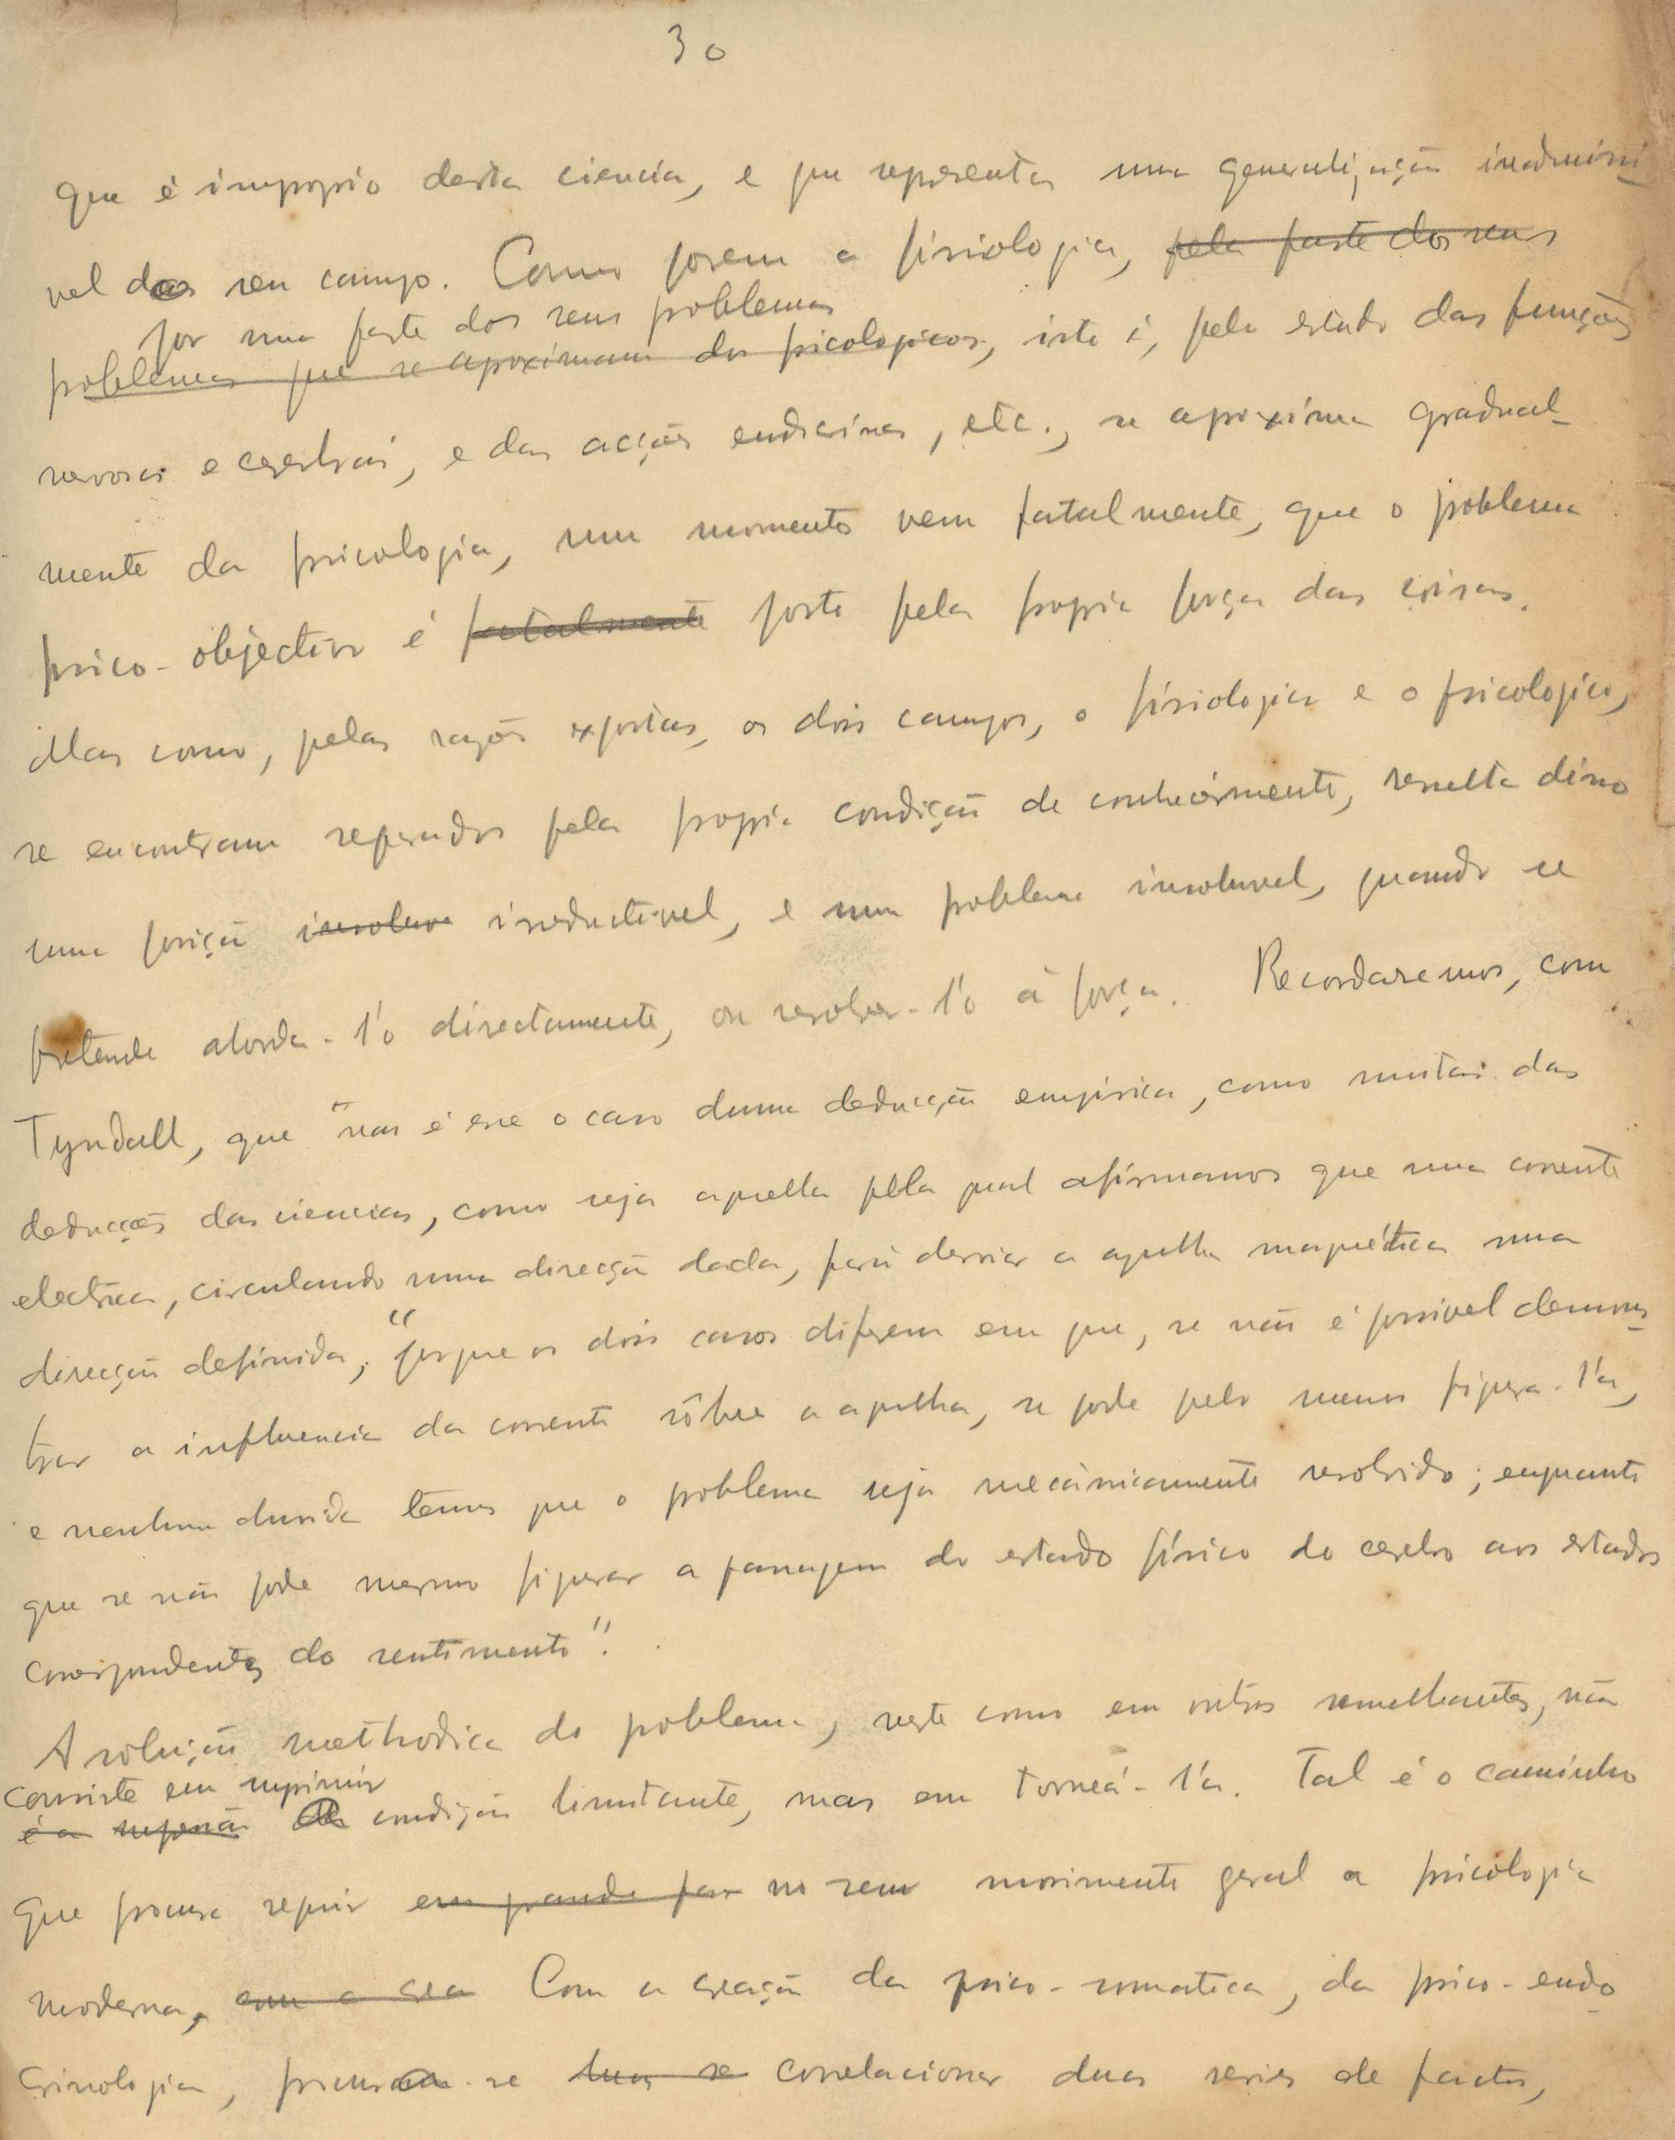 30
que é improprio desta ciencia, e que representa uma generalização inadmissi
vel do seu campo. Como porem a fisiologia, pela parte dos seus
por uma parte dos seus problemas
problemas que se aproximam dos psicologicos, isto é, pelo estudo das funções
nervosas e cerebrais, e das acções endocrinas, etc., se aproxima gradual-
mente da psicologia, um momento vem fatalmente, que o problema
psico-objectivo é fatalmente posto pela propria força das coisas.
Mas como, pelas razões expostas, os dois campos, o fisiologico e o psicologico,
se encontram separados pela propria condição de conhecimento, resulta disso
uma posição insoluve irreductivel, e um problema insoluvel, quando se
pretende aborda-l'o directamente, ou resolver-l'o à força. Recordaremos, com
Tyndall, que "não é esse o caso duma deducção empirica, como muitas das
deducções das ciencias, como seja aquella pela qual afirmamos que uma corrente
electrica, circulando numa direcção dada, fará desviar a agulha magnética numa
direcção definida; "porque os dois casos diferem em que, se não é possivel demons
trar a influencia da corrente sôbre a agulha, se pode pelo menos figura-l'a,
e nenhuma duvida temos que o problema seja mecânicamente resolvido; enquanto
que se não pode mesmo figurar a passagem do estado fisico do cerebro aos estados
correspondentes do sentimento".
A solução methodica do problema, neste como em outros semelhantes, não
consiste em suprimir
é a supressão a condição limitante, mas em torneá-l'a. Tal é o caminho
que procura seguir em grande par no seu movimento geral a psicologia
moderna, com a crea Com a creação da psico-somatica, da psico-endo
crinologia, procura-se correlacionar duas series de factos,